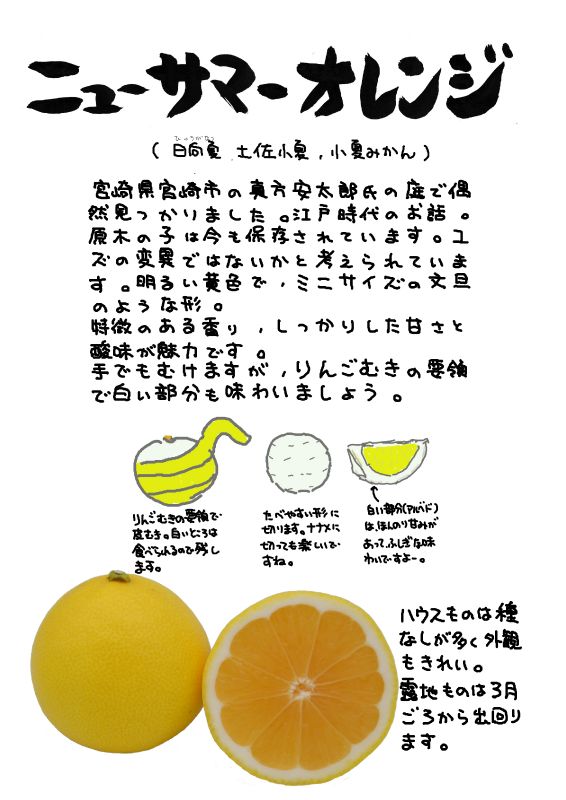 ニューサマーオレンジ
びゅうがなつ
(日向夏 土佐小夏,小夏みかん)
宮崎県宮崎市の真方安太郎氏の庭で偶
然見つかりました。江戸時代のお話。
原木の子は今も保存されています。ユ
ズの変異ではないかと考えられていま
す。明るい黄色で,ミニサイズの文旦
のような形。
特徴のある香り,しっかりした甘さと
酸味が魅力です。
手でもむけますが,りんごむきの要領
で白い部分も味わいましょう。
りんごむきの要領で
皮むき。白いところは
食べられるので残し
ます。
たべやすい形に
切ります。ナナメに
切っても楽しいで
すね。
白い部分(アルベド)
は、ほんのり甘みが
あって、ふしぎな味
わいですよー。
ハウスものは種
なしが多く外観
もきれい。
露地ものは3月
ごろから出回り
ます。